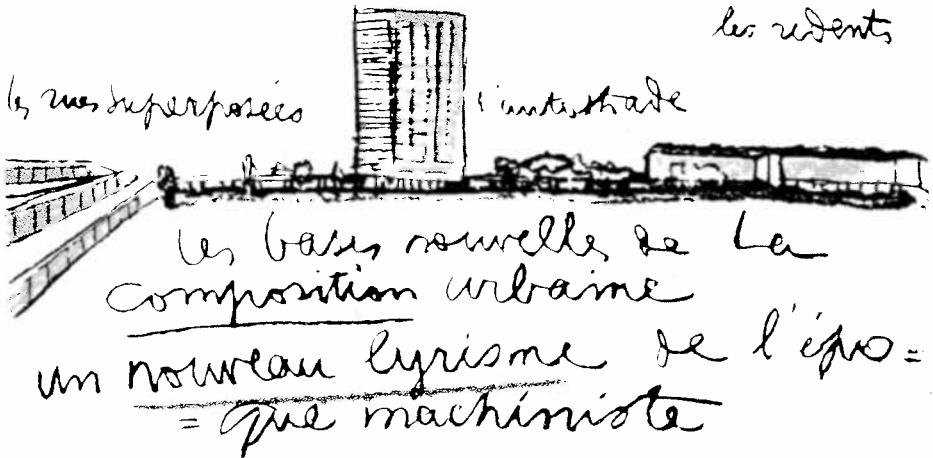 les redents
les rues superposées
l'autostrade
les bases nouvelles de La
composition urbaine
un nouveau lyrisme de l'épo=
=que machiniste